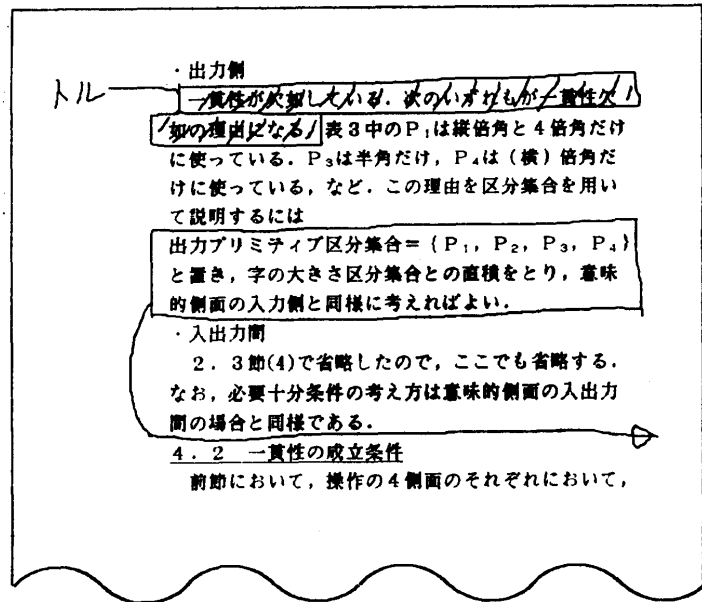 ・出力側
トル
一貫性が欠如している．次のいずれもが一貫性欠
如の理由になる 表3中のP₁は縦倍角と4倍角だけ
に使っている．P₃は半角だけ，P₄は（横）倍角だ
けに使っている，など．この理由を区分集合を用い
て説明するには
出力プリミティブ区分集合＝｛P₁，P₂，P₃，P₄｝
と置き，字の大きさ区分集合との直積をとり，意味
的側面の入力側と同様に考えればよい．
・入出力間
２．３節(4)で省略したので，ここでも省略する．
なお，必要十分条件の考え方は意味的側面の入出力
間の場合と同様である．
４．２　一貫性の成立条件
前節において，操作の4側面のそれぞれにおいて，